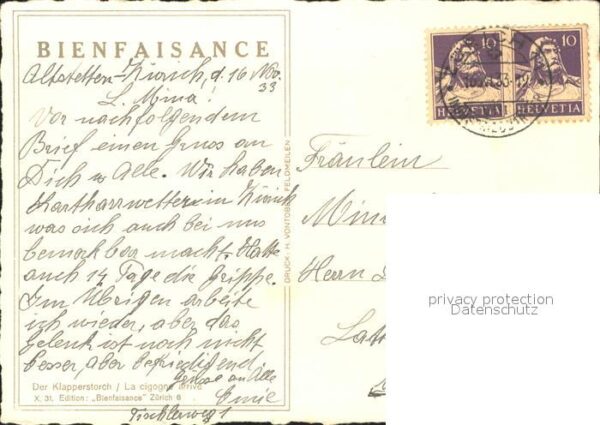 BIENFAISANCE
Altstetten-Zürich, d. 16 Nov.
33
L. Mina!
Vor nachfolgendem
Brief einen Gruss an
Dich u Alle. Wir haben
wetter in Zürich
was sich auch bei uns
bemerkbar macht. Hatte
auch 14 Tage die Grippe.
Im Übrigen arbeite
ich wieder, aber das
Gelenk ist noch nicht
besser, aber befriedigend
Gruss an Alle
Der Klapperstorch / La cigogne arrive
X. 31. Edition: „Bienfaisance" Zürich 6
Tischlerweg 1
DRUCK - H. VONTOBEL, FELDMEILEN
10 10
HELVETIA HELVETIA
Fräulein
Min
Herrn
privacy protection
Datenschutz